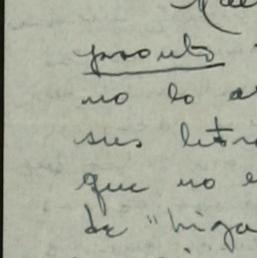 pronto
no lo a
sus letr
que no e
de "higa